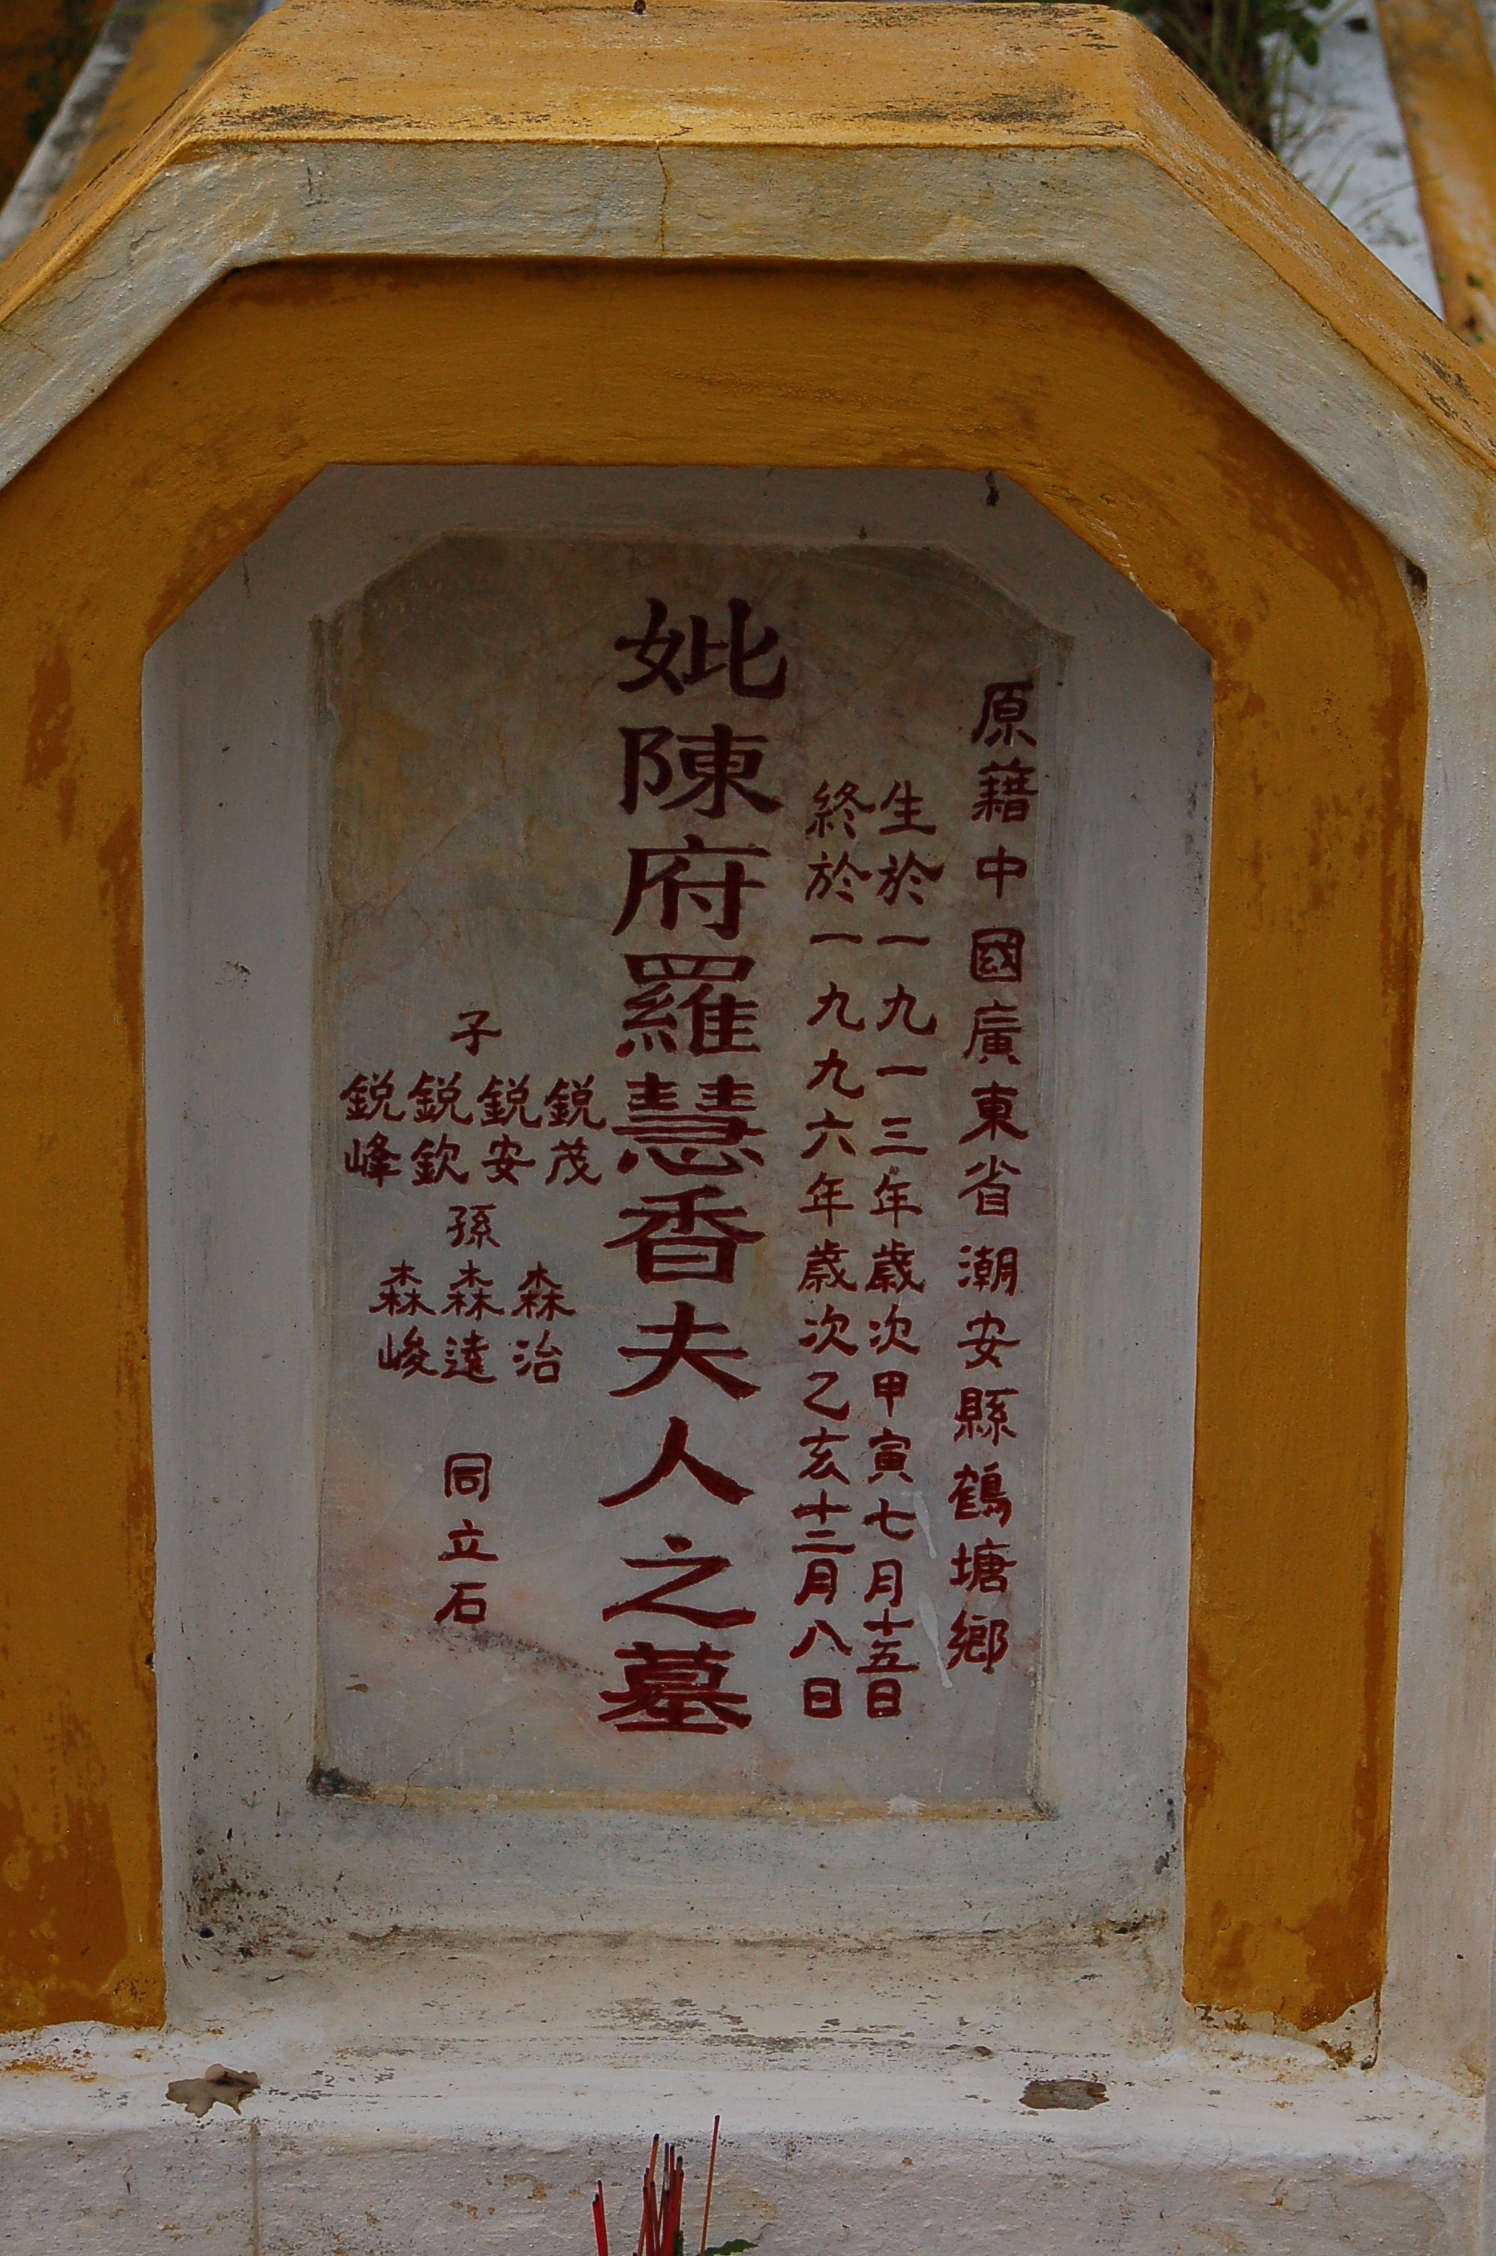 原藉中國廣東省潮安縣鶴塘鄉
生於一九一三年歲次甲寅七月十五日
終於一九九六年歲次乙亥十二月八日
妣陳府羅慧香夫人之墓
子
銳茂
銳安
銳欽
銳峰
孫
森治
森遠
森峻
同立石